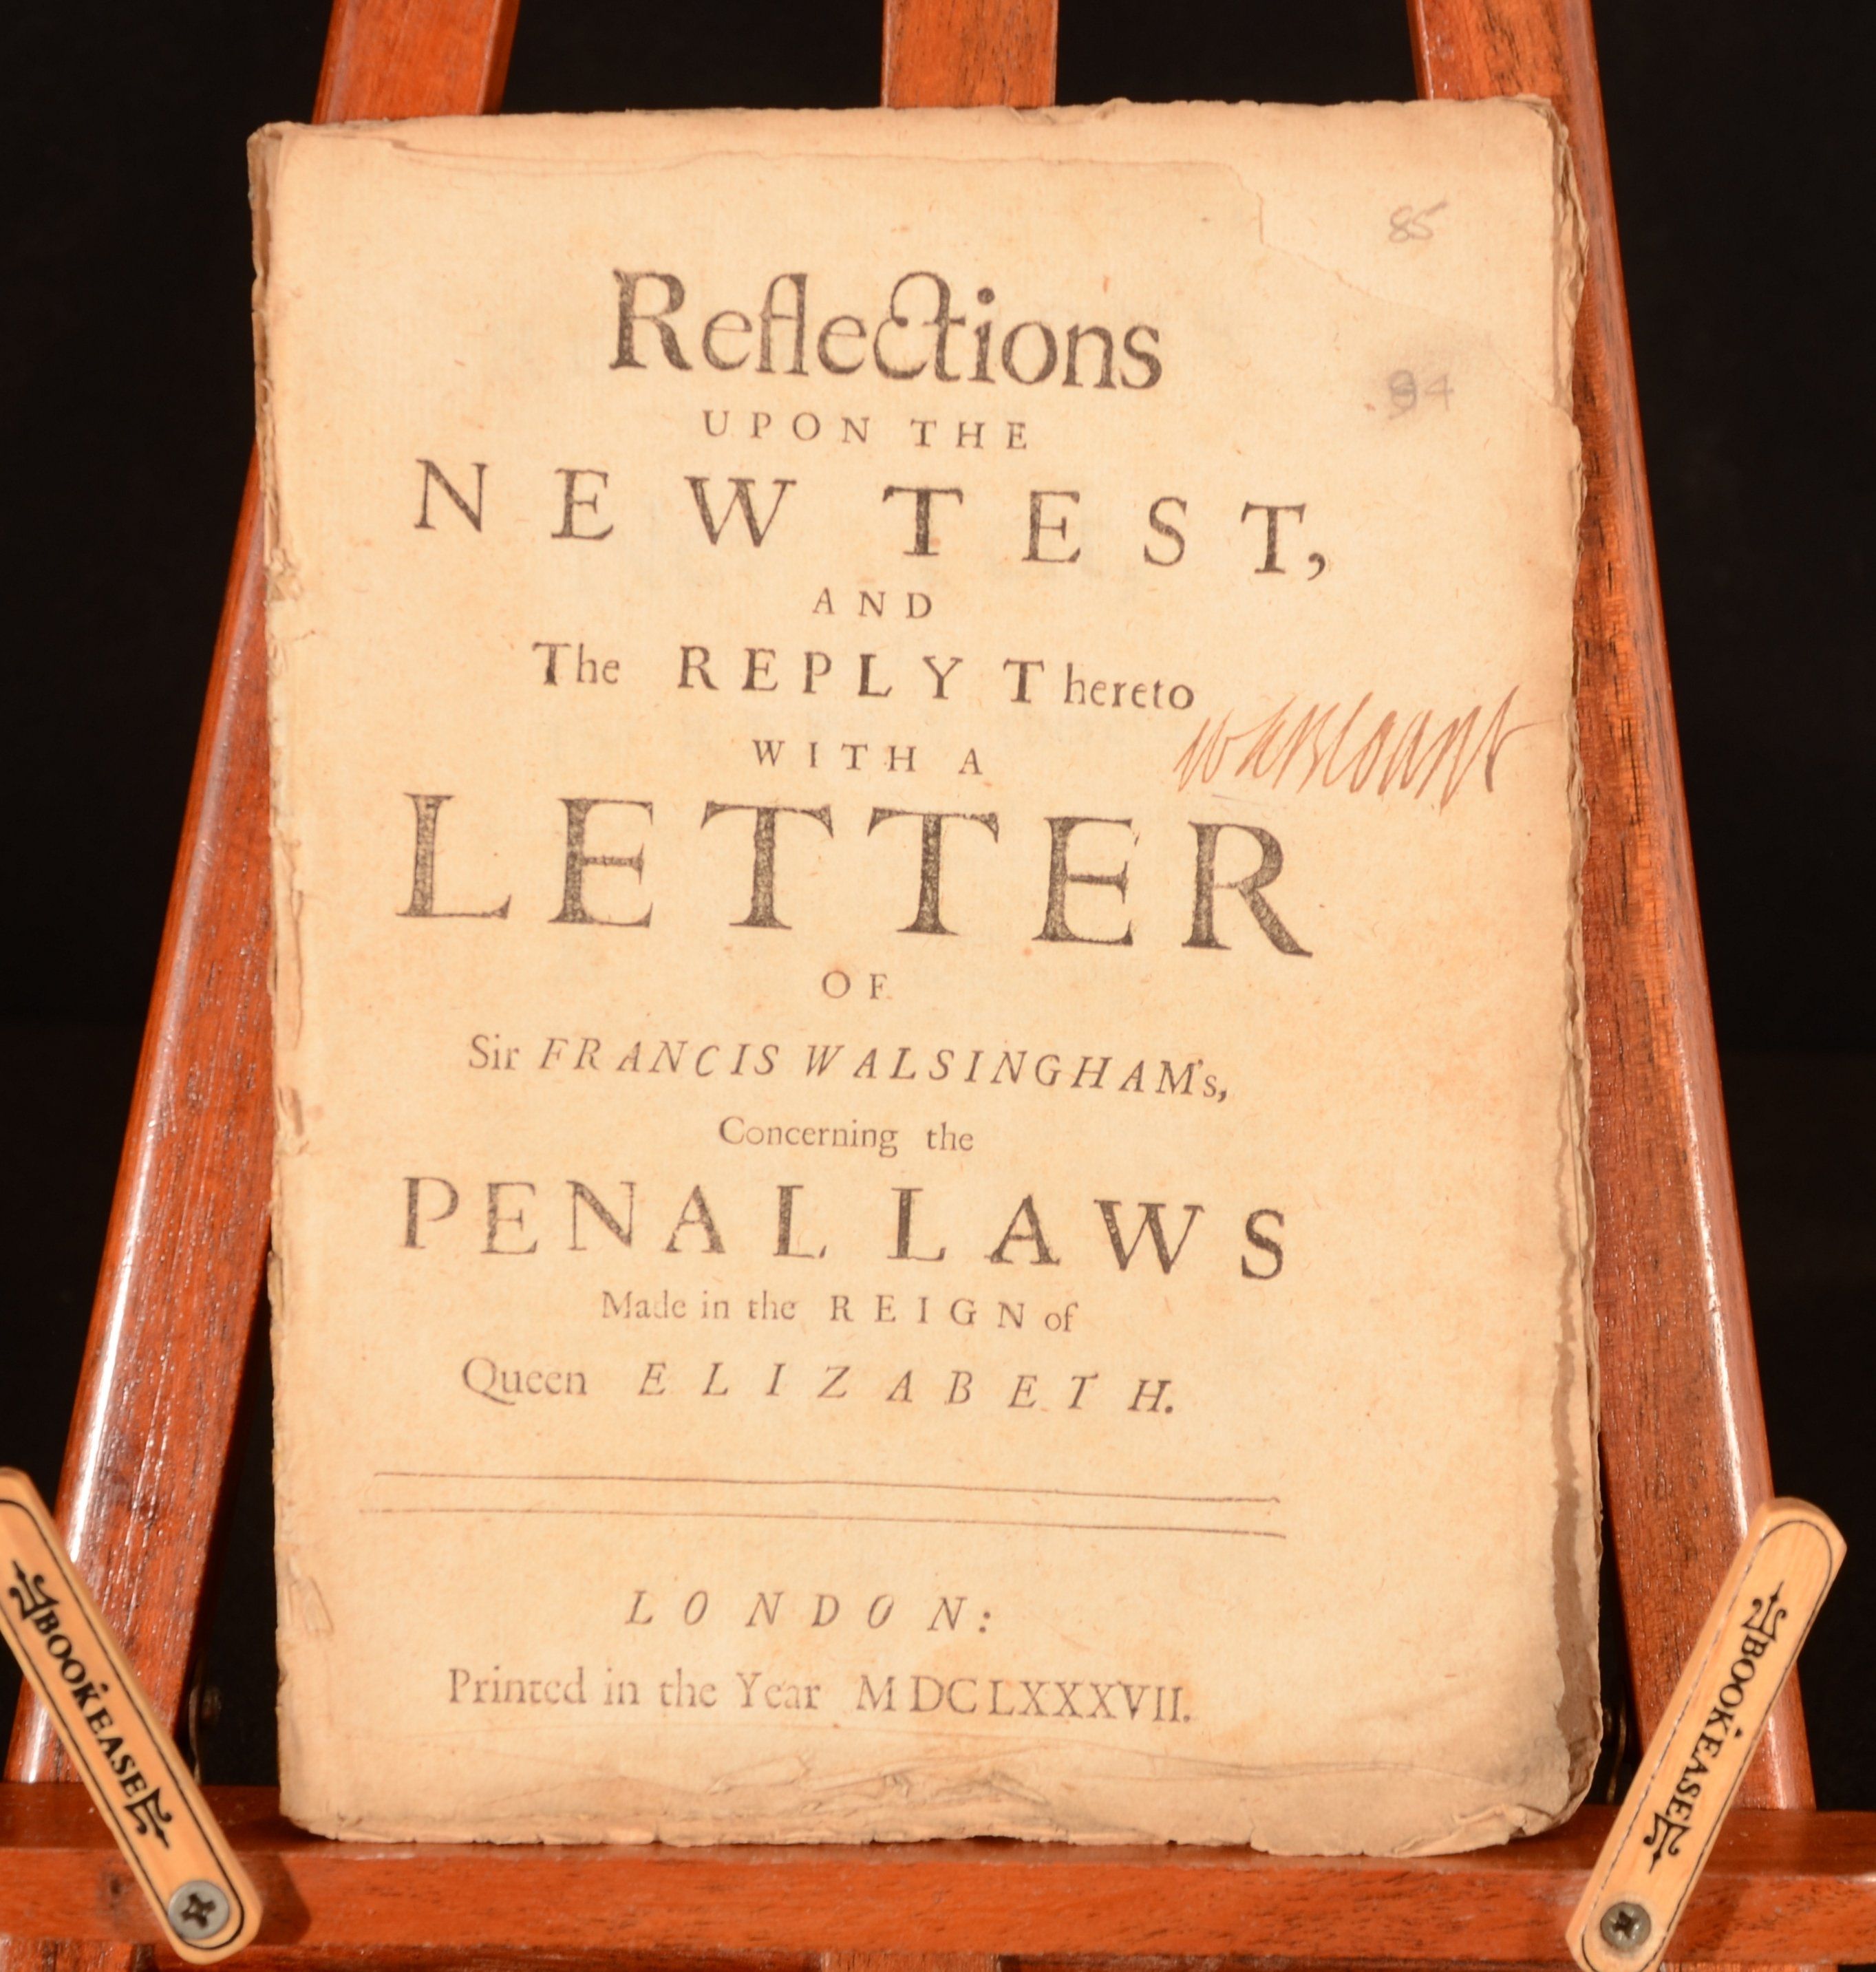 85
Reflections
UPON THE
94
NEW TEST,
AND
The REPLY Thereto
WITH A
LETTER
OF
Sir FRANCIS WALSINGHAM's,
Concerning the
PENAL LAWS
Made in the REIGN of
Queen ELIZABETH.
LONDON:
Printed in the Year MDCLXXXVII.
BOOK EASE
BOOK EASE